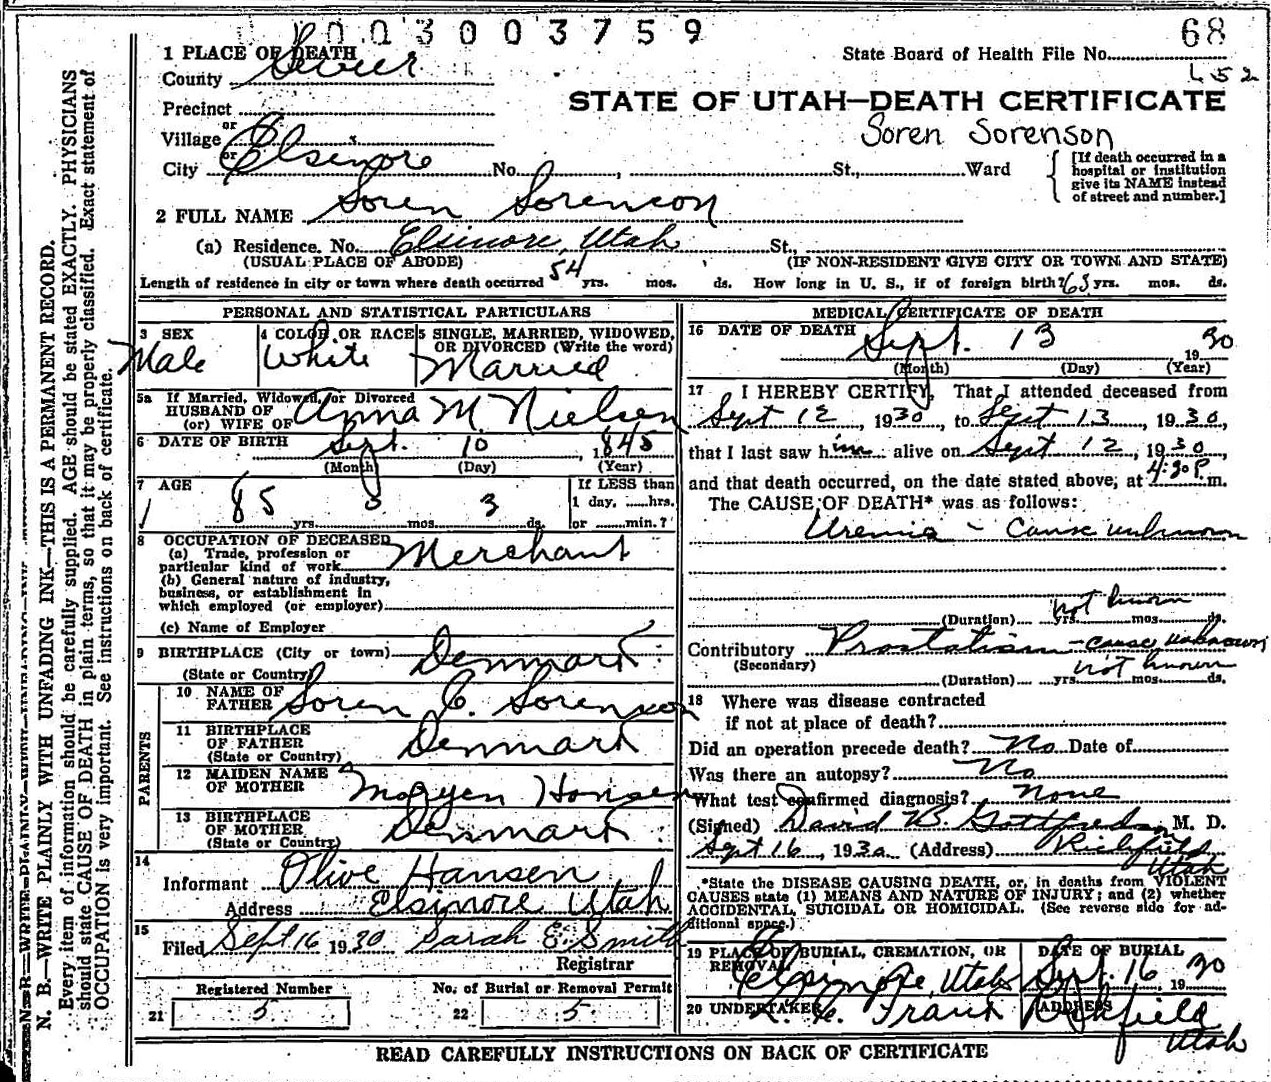 0030003759 68
1 PLACE OF DEATH State Board of Health File No.
County Sevier 452
Precinct STATE OF UTAH—DEATH CERTIFICATE
or
Village Soren Sorenson
or
City Elsinore No. , St., Ward [If death occurred in a hospital or institution give its NAME instead of street and number.]
2 FULL NAME Soren Sorenson
(a) Residence. No. Elsinore, Utah St.,
(USUAL PLACE OF ABODE) (IF NON-RESIDENT GIVE CITY OR TOWN AND STATE)
Length of residence in city or town where death occurred 54 yrs. mos. ds. How long in U. S., if of foreign birth? 65 yrs. mos. ds.
PERSONAL AND STATISTICAL PARTICULARS
3 SEX 4 COLOR OR RACE 5 SINGLE, MARRIED, WIDOWED,
OR DIVORCED (Write the word)
Male White Married
5a If Married, Widowed, or Divorced
HUSBAND OF
(or) WIFE OF Anna M. Nielsen
6 DATE OF BIRTH Sept. 10, 1845
(Month) (Day) (Year)
7 AGE If LESS than
1 day, hrs.
85 yrs. mos. 3 ds. or min.?
8 OCCUPATION OF DECEASED
(a) Trade, profession or
particular kind of work Merchant
(b) General nature of industry,
business, or establishment in
which employed (or employer)
(c) Name of Employer
9 BIRTHPLACE (City or town) Denmark
(State or Country)
PARENTS
10 NAME OF
FATHER Soren C. Sorenson
11 BIRTHPLACE
OF FATHER Denmark
(State or Country)
12 MAIDEN NAME
OF MOTHER Hansen
13 BIRTHPLACE
OF MOTHER Denmark
(State or Country)
14
Informant Olive Hansen
Address Elsinore Utah
15
Filed Sept 16 1930 Sarah E. Smith
Registrar
Registered Number No. of Burial or Removal Permit
21 5 22 5
MEDICAL CERTIFICATE OF DEATH
16 DATE OF DEATH Sept. 13 1930
(Month) (Day) (Year)
17 I HEREBY CERTIFY, That I attended deceased from
Sept 12, 1930, to Sept 13, 1930,
that I last saw him alive on Sept 12, 1930,
and that death occurred, on the date stated above, at 4:30 P. m.
The CAUSE OF DEATH* was as follows:
Uremia - Cause unknown
not known
(Duration) yrs. mos. ds.
Contributory Prostatism - cause unknown
(Secondary) not known
(Duration) yrs. mos. ds.
18 Where was disease contracted
if not at place of death?
Did an operation precede death? No Date of
Was there an autopsy? No
What test confirmed diagnosis? None
(Signed) David B. Gottfredson M. D.
Sept 16, 1930 (Address) Richfield
Utah
*State the DISEASE CAUSING DEATH, or, in deaths from VIOLENT
CAUSES state (1) MEANS AND NATURE OF INJURY; and (2) whether
ACCIDENTAL, SUICIDAL OR HOMICIDAL. (See reverse side for ad-
ditional space.)
19 PLACE OF BURIAL, CREMATION, OR
REMOVAL DATE OF BURIAL
Elsinore, Utah Sept. 16 1930
20 UNDERTAKER ADDRESS
Richfield
Utah
READ CAREFULLY INSTRUCTIONS ON BACK OF CERTIFICATE
N. B.—WRITE PLAINLY WITH UNFADING INK—THIS IS A PERMANENT RECORD.
Every item of information should be carefully supplied. AGE should be stated EXACTLY. PHYSICIANS
should state CAUSE OF DEATH in plain terms, so that it may be properly classified. Exact statement of
OCCUPATION is very important. See instructions on back of certificate.